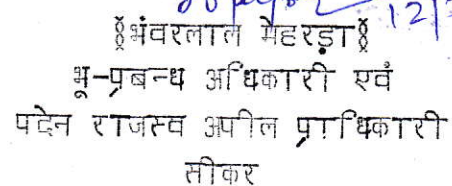 §भंवरलाल मैहरड़ा§
भू-प्रबन्ध अधिकारी एवं
पदेन राजस्व अपील प्राधिकारी
सीकर